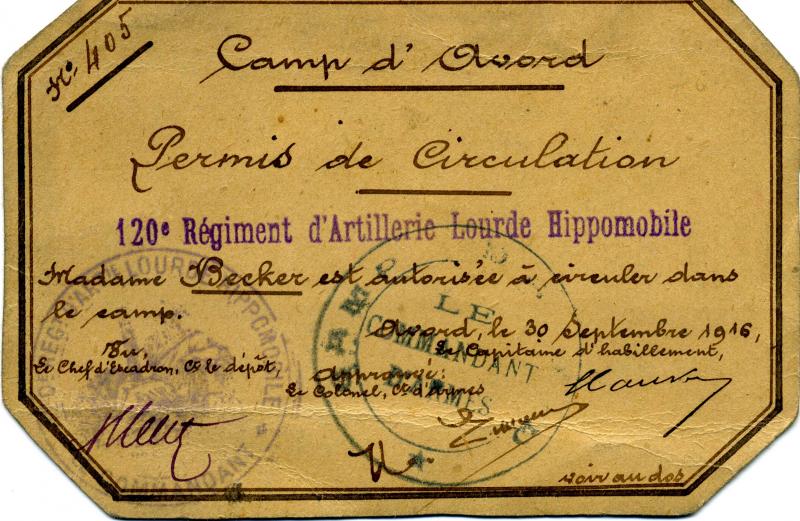 No 405
Camp d'Avord
Permis de Circulation
120e Régiment d'Artillerie Lourde Hippomobile
Madame Becker est autorisée à circuler dans
le camp.
Avord, le 30 Septembre 1916,
Vu,
Le Chef d'Escadron, Ct le dépôt,
Le Capitaine d'habillement,
Approuvé:
Le Colonel, Ct d'Armes
LE
COMMANDANT
D'ARMES
REGt D'ARTie LOURDE HIPPOMOBILE
COMMANDANT
voir au dos